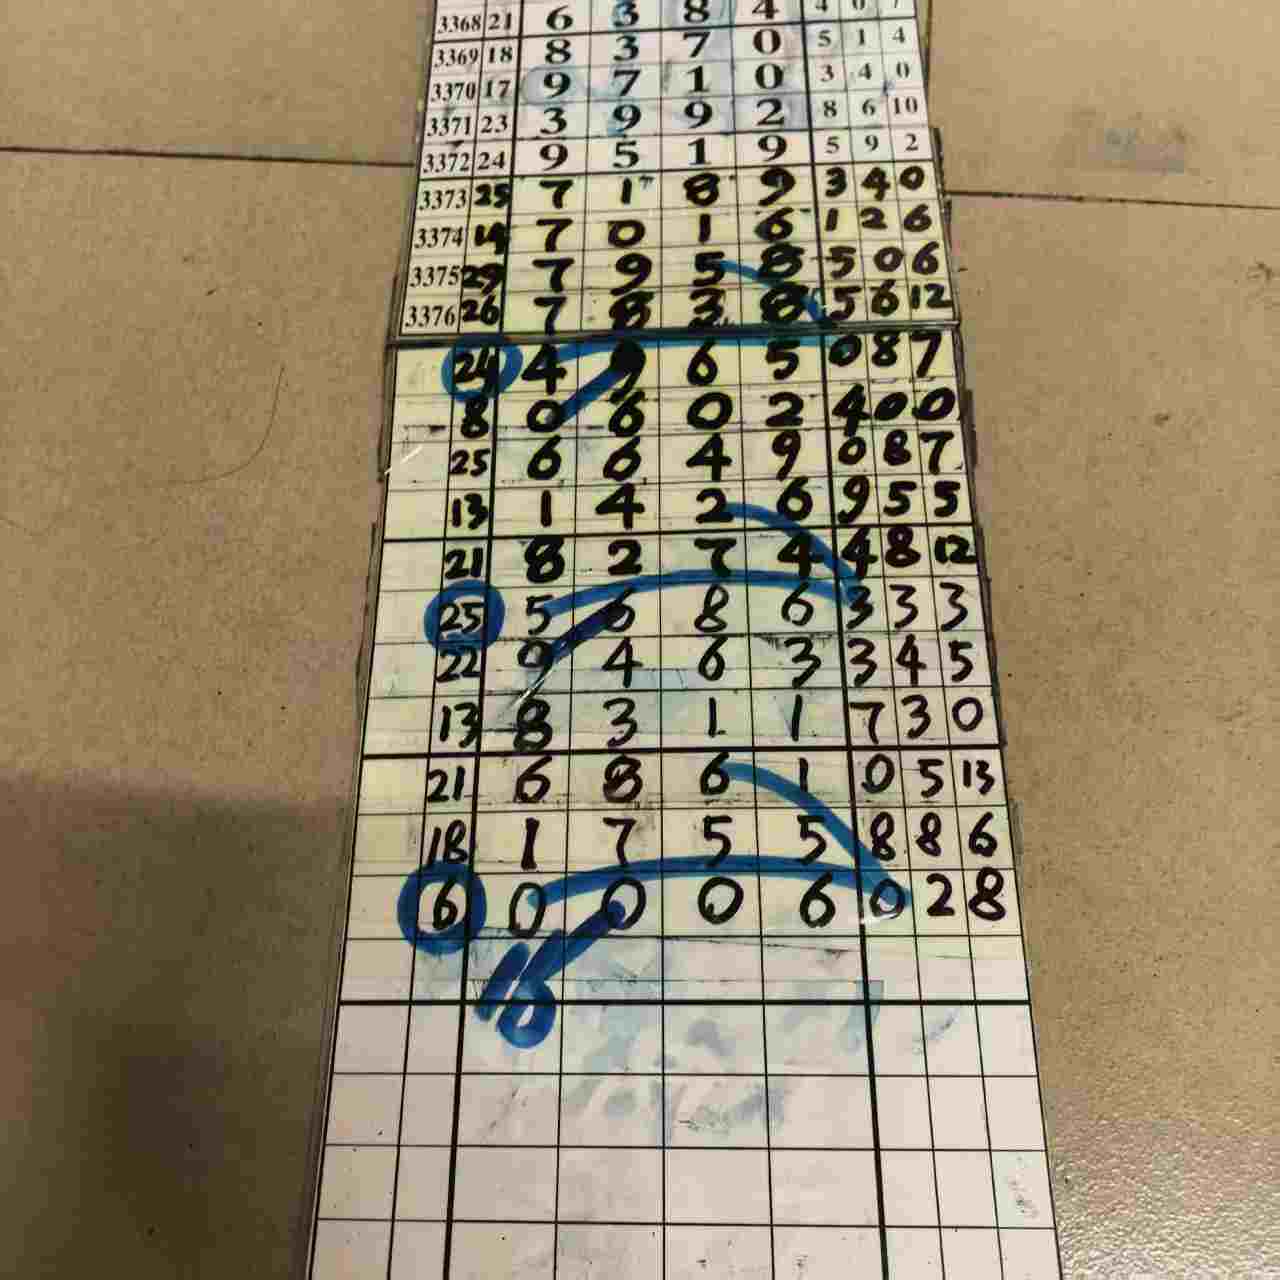 3368 21 6 3 8 4 4 0 7
3369 18 8 3 7 0 5 1 4
3370 17 9 7 1 0 3 4 0
3371 23 3 9 9 2 8 6 10
3372 24 9 5 1 9 5 9 2
3373 25 7 1 8 9 3 4 0
3374 14 7 0 1 6 1 2 6
3375 29 7 9 5 8 5 0 6
3376 26 7 8 3 8 5 6 12
24 4 9 6 5 0 8 7
8 0 6 0 2 4 0 0
25 6 6 4 9 0 8 7
13 1 4 2 6 9 5 5
21 8 2 7 4 4 8 12
25 5 6 8 6 3 3 3
22 9 4 6 3 3 4 5
13 8 3 1 1 7 3 0
21 6 8 6 1 0 5 13
18 1 7 5 5 8 8 6
6 0 0 0 6 0 2 8